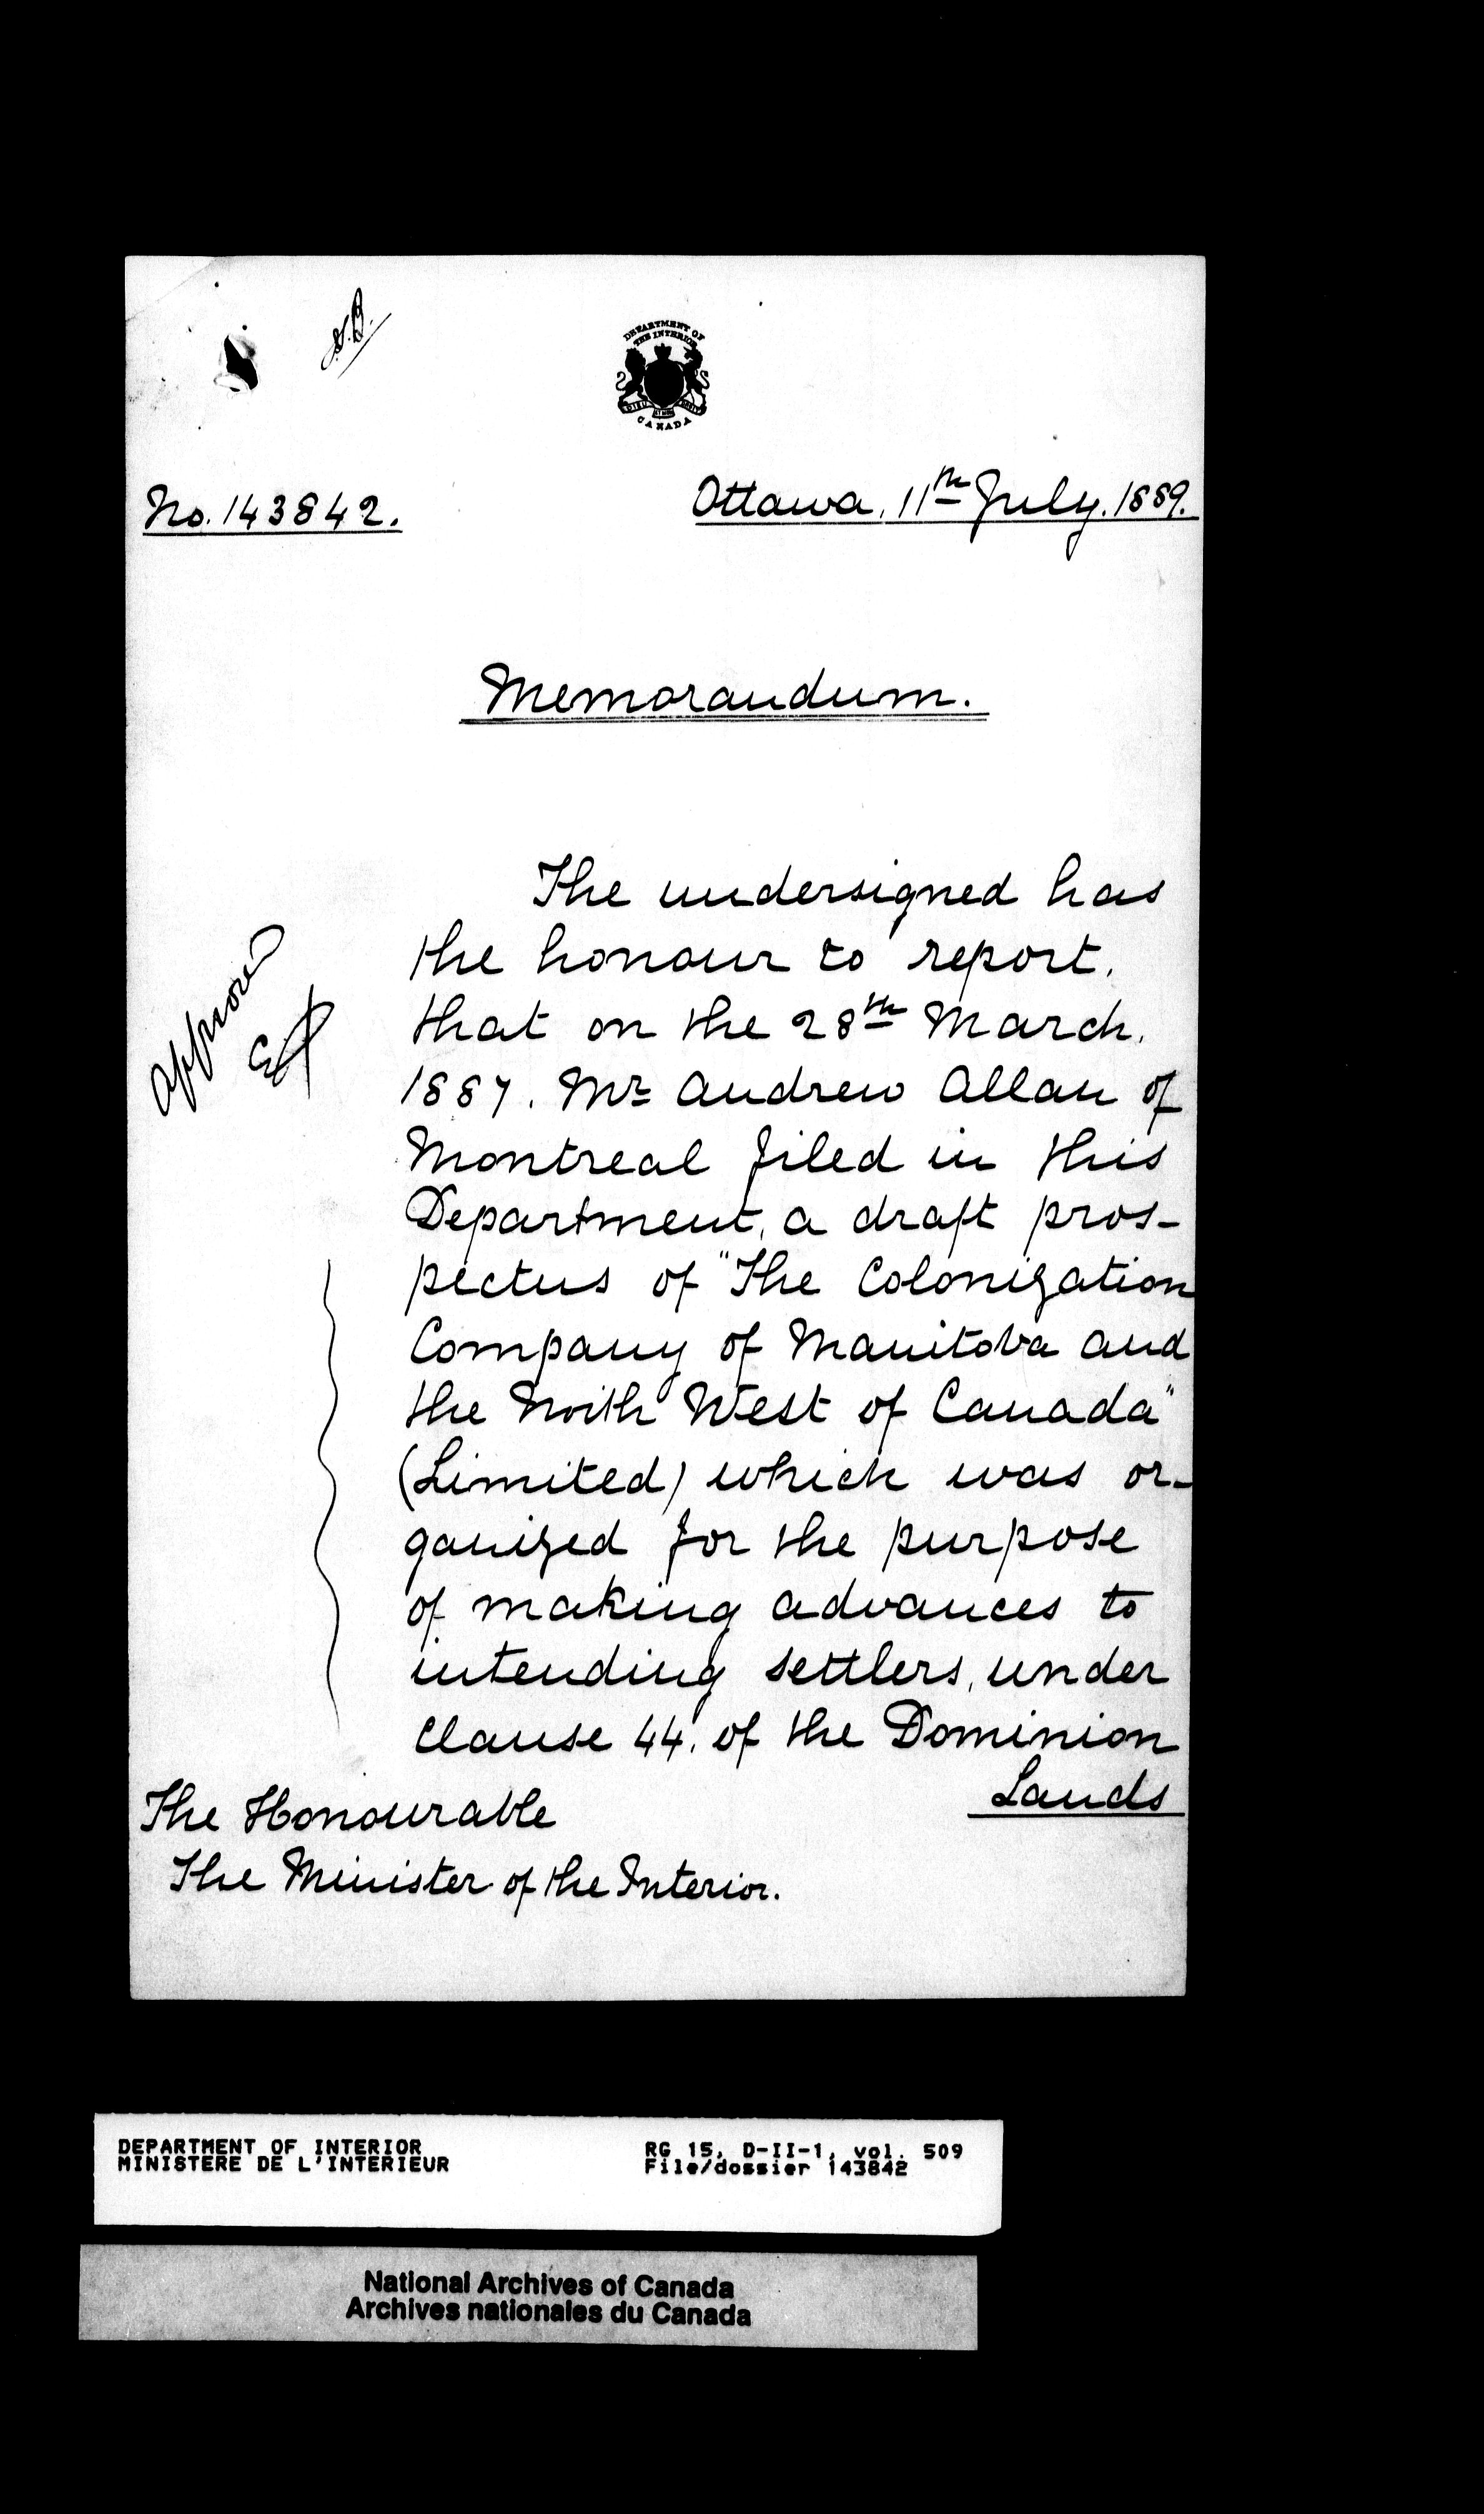 DEPARTMENT OF
THE INTERIOR
CANADA
No. 143842.
Ottawa, 11th July, 1889.
Memorandum.
The undersigned has
the honour to report,
that on the 28th March,
1887, Mr. Andrew Allan of
Montreal filed in this
Department, a draft pros-
pectus of "The Colonization
Company of Manitoba and
the North West of Canada"
(Limited) which was or-
ganized for the purpose
of making advances to
intending settlers, under
Clause 44, of the Dominion
Lands
Approved
The Honourable
The Minister of the Interior.
DEPARTMENT OF INTERIOR
MINISTERE DE L'INTERIEUR
RG 15, D-II-1, vol. 509
File/dossier 143842
National Archives of Canada
Archives nationales du Canada